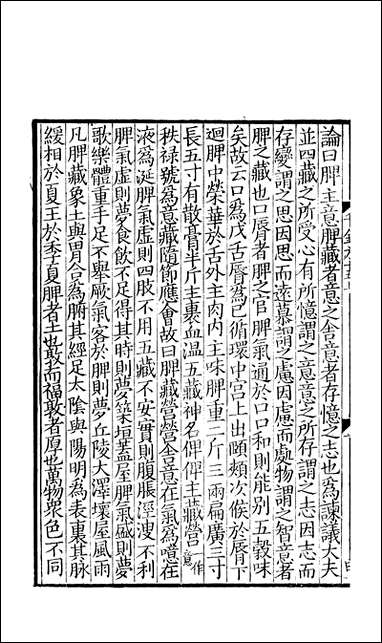 論曰脾主意脾藏者意之舍意者存憶之志也為諫議大夫
並四藏之所受心有所憶謂之意意之所存謂之志因志而
存變謂之思因思而遠慕謂之慮因慮而處物謂之智意者
脾之藏也口脣者脾之官脾氣通於口口和則能別五穀味
矣故云口爲戊舌脣爲己循環中宮上出頤頰次候於脣下
迴脾中榮華於舌外主肉內主味脾重二斤三兩扁廣三寸
長五寸有散膏半斤主裹血溫五藏神名俾俾主藏營一作意
秩祿號爲意藏隨節應會故曰脾藏營營舍意在氣爲噫在
液爲涎脾氣虛則四肢不用五藏不安實則腹脹涇溲不利
脾氣虛則夢飲食不足得其時則夢築垣蓋屋脾氣盛則夢
歌樂體重手足不舉厥氣客於脾則夢丘陵大澤壞屋風雨
凡脾藏象土與胃合爲腑其經足太陰與陽明爲表裏其脉
緩相於夏王於季夏脾者土也敦而福敦者厚也萬物衆色不同